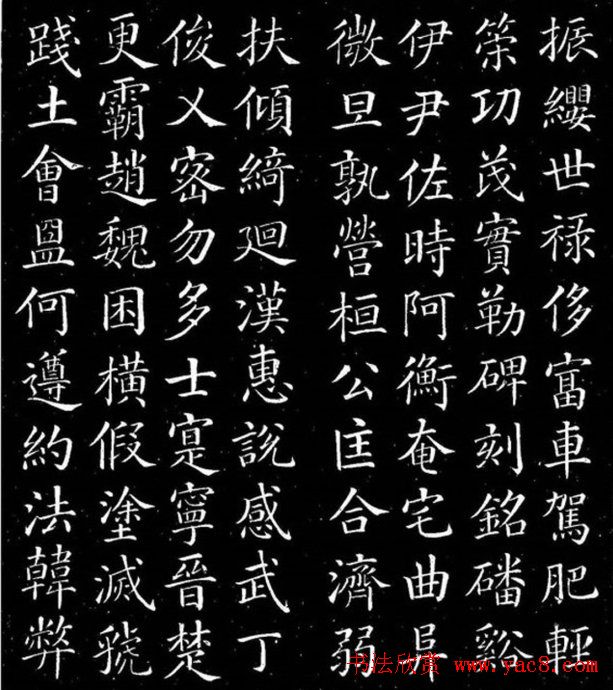 振纓世禄侈富車駕肥輕
策功茂實勒碑刻銘磻谿
伊尹佐時阿衡奄宅曲阜
微旦孰營桓公匡合濟弱
扶傾綺迴漢惠說感武丁
俊乂密勿多士寔寧晉楚
更霸趙魏困橫假塗滅虢
踐土會盟何遵約法韓弊
书法欣赏 www.yac8.com